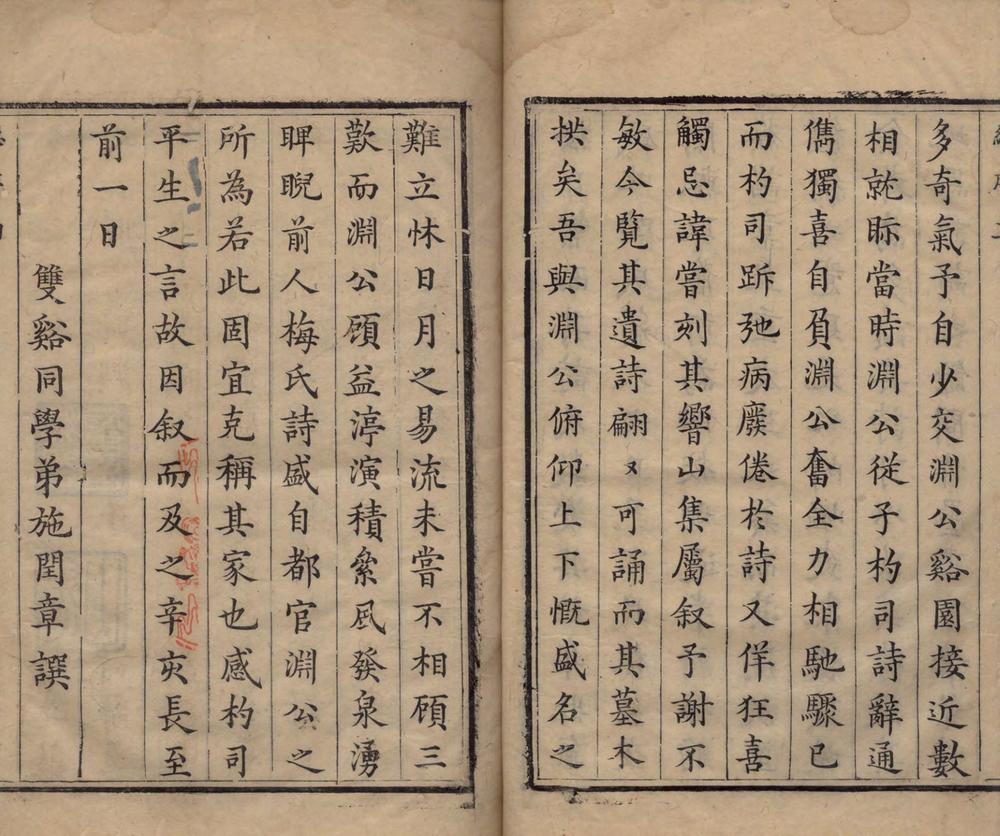 多奇氣予自少交淵公谿園接近數
相就眎當時淵公從子杓司詩辭通
儁獨喜自負淵公奮全力相馳驟已
而杓司跅弛病廢倦於詩又佯狂喜
觸忌諱嘗刻其響山集屬叙予謝不
敏今覽其遺詩翩〻可誦而其墓木
拱矣吾與淵公俯仰上下慨盛名之
難立怵日月之易流未嘗不相顧三
歎而淵公顧益渟演積絫風發泉湧
睥睨前人梅氏詩盛自都官淵公之
所為若此固宜克稱其家也感杓司
平生之言故因叙而及之辛亥長至
前一日
雙谿同學弟施閏章譔